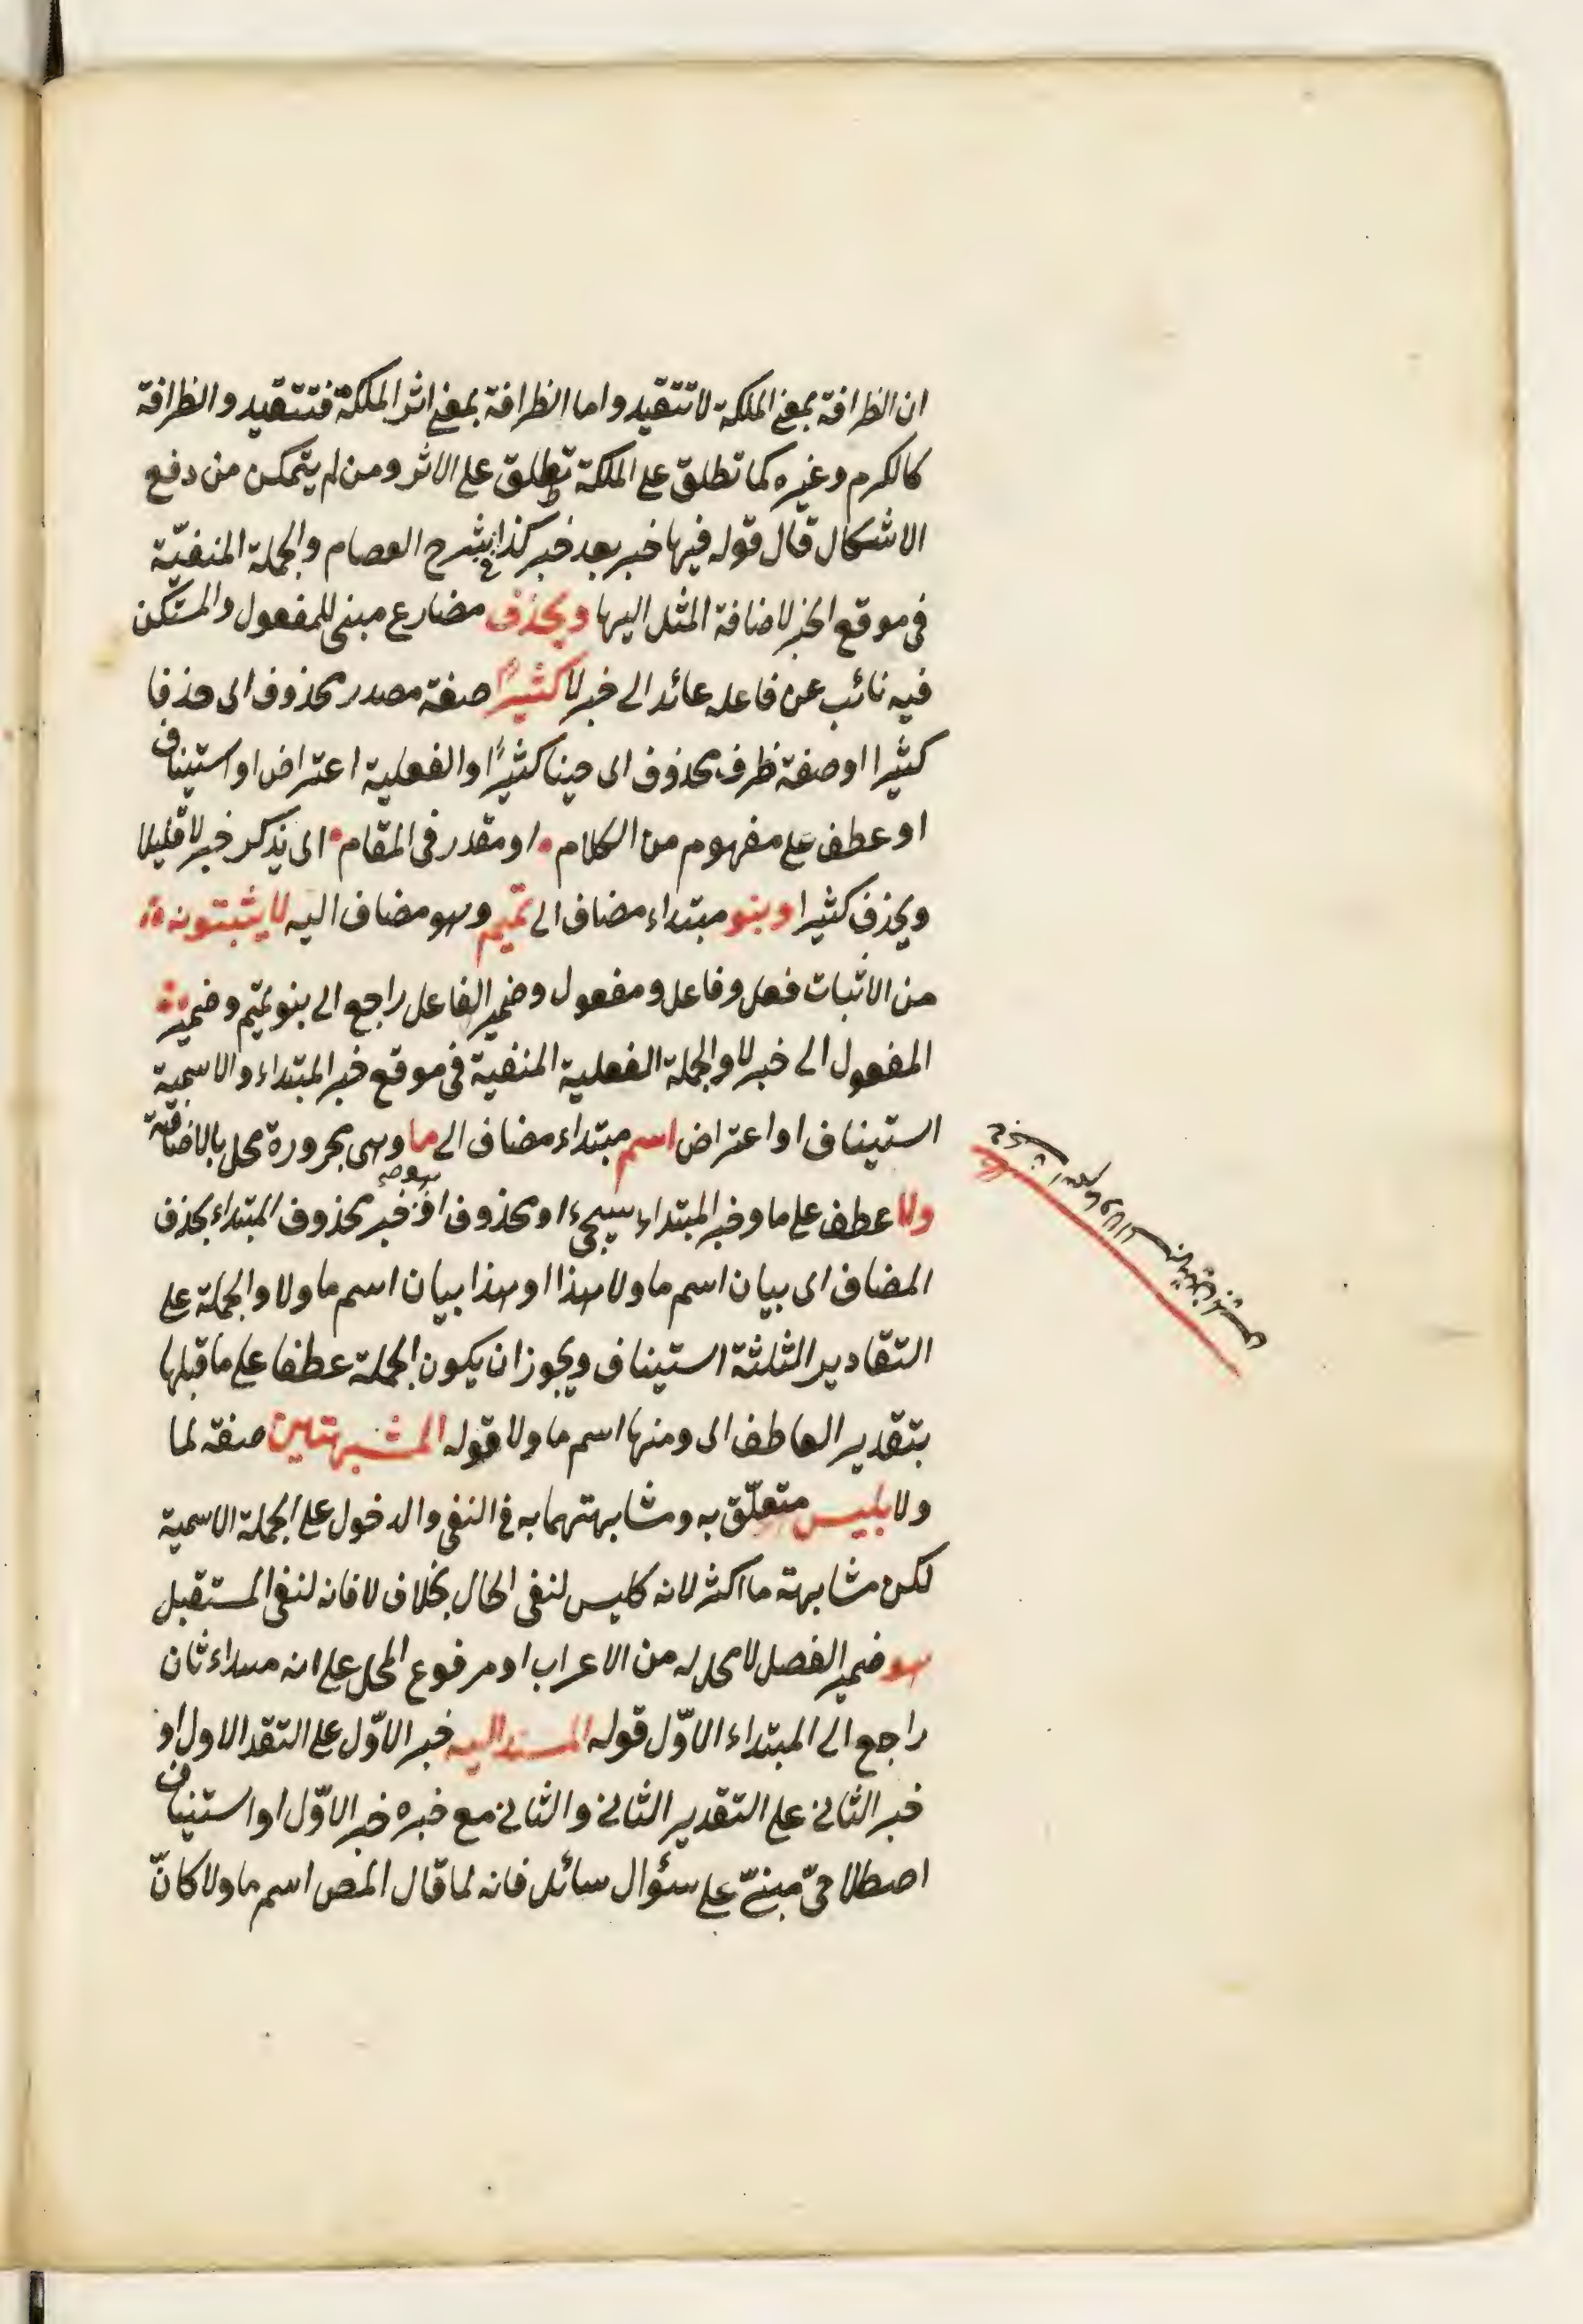 ان الظرافة بمعنى الملكة لا تتقيد واما الظرافة بمعنى اثر الملكة فتتقيد والظرافة
كالكرم وغيره كما تطلق على الملكة تطلق على الاثر ومن لم يتمكن من دفع
الاشكال قال قوله فيها خبر بعد خبر كذا في شرح العصام والجملة المنفيّة
فى موقع الجر لاضافة المثل اليها ويحذف مضارع مبنى للمفعول والمستكن
فيه نائب عن فاعله عائد الى خبر لا كثيرًا صفة مصدر محذوف اى حذفا
كثيرا او صفة ظرف محذوف اى حينا كثيرًا والفعلية اعتراض او استيناف
او عطف على مفهوم من الكلام او مقدر فى المقام اى يذكر خبر لا قليلا
ويحذف كثيرا وبنو مبتداء مضاف الى تميم وهو مضاف اليه لا يثبتونه
من الاثبات فعل وفاعل ومفعول وضمير الفاعل راجع الى بنو تميم وضمير
المفعول الى خبر لا والجملة الفعلية المنفية فى موقع خبر المبتداء والاسمية
استيناف او اعتراض اسم مبتداء مضاف الى ما وهى مجرورة محل بالاضافة
ولا عطف على ما وخبر المبتداء سيجىء او محذوف او خبر محذوف المبتداء بحذف
المضاف اى بيان اسم ما ولا هذا او هذا بيان اسم ما ولا والجملة على
التقادير الثلثة استيناف ويجوز ان يكون الجملة عطفا على ما قبلها
بتقدير العاطف اى ومنها اسم ما ولا قوله المشبهتين صفة لما
ولا بليس متعلّق به ومشابهتهما به فى النفى والدخول على الجملة الاسمية
لكن مشابهة ما اكثر لانه كليس لنفى الحال بخلاف لا فانه لنفى المستقبل
هو ضمير الفصل لا محل له من الاعراب او مرفوع المحل على انه مبتداء ثان
راجع الى المبتداء الاوّل قوله المسند اليه خبر الاوّل على التقد الاول او
خبر الثانى على التقدير الثانى والثانى مع خبره خبر الاوّل او استيناف
اصطلاحىّ مبنىّ على سؤال سائل فانه لما قال المص اسم ما ولا كانّ